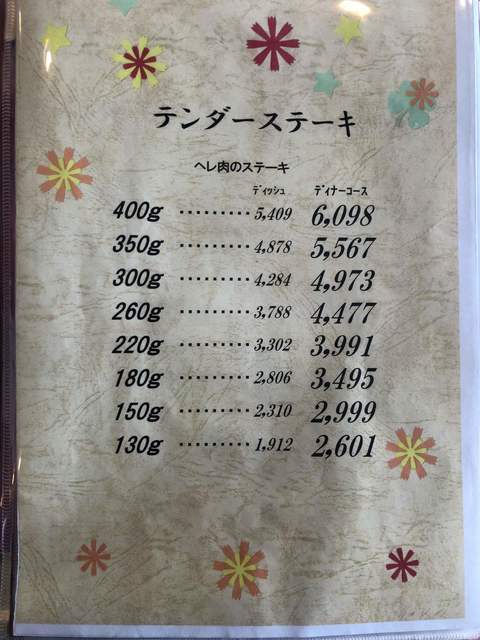 テンダーステーキ
ヘレ肉のステーキ
ディッシュ ディナーコース
400g ········· 5,409 6,098
350g ········· 4,878 5,567
300g ········· 4,284 4,973
260g ········· 3,788 4,477
220g ········· 3,302 3,991
180g ········· 2,806 3,495
150g ········· 2,310 2,999
130g ········· 1,912 2,601